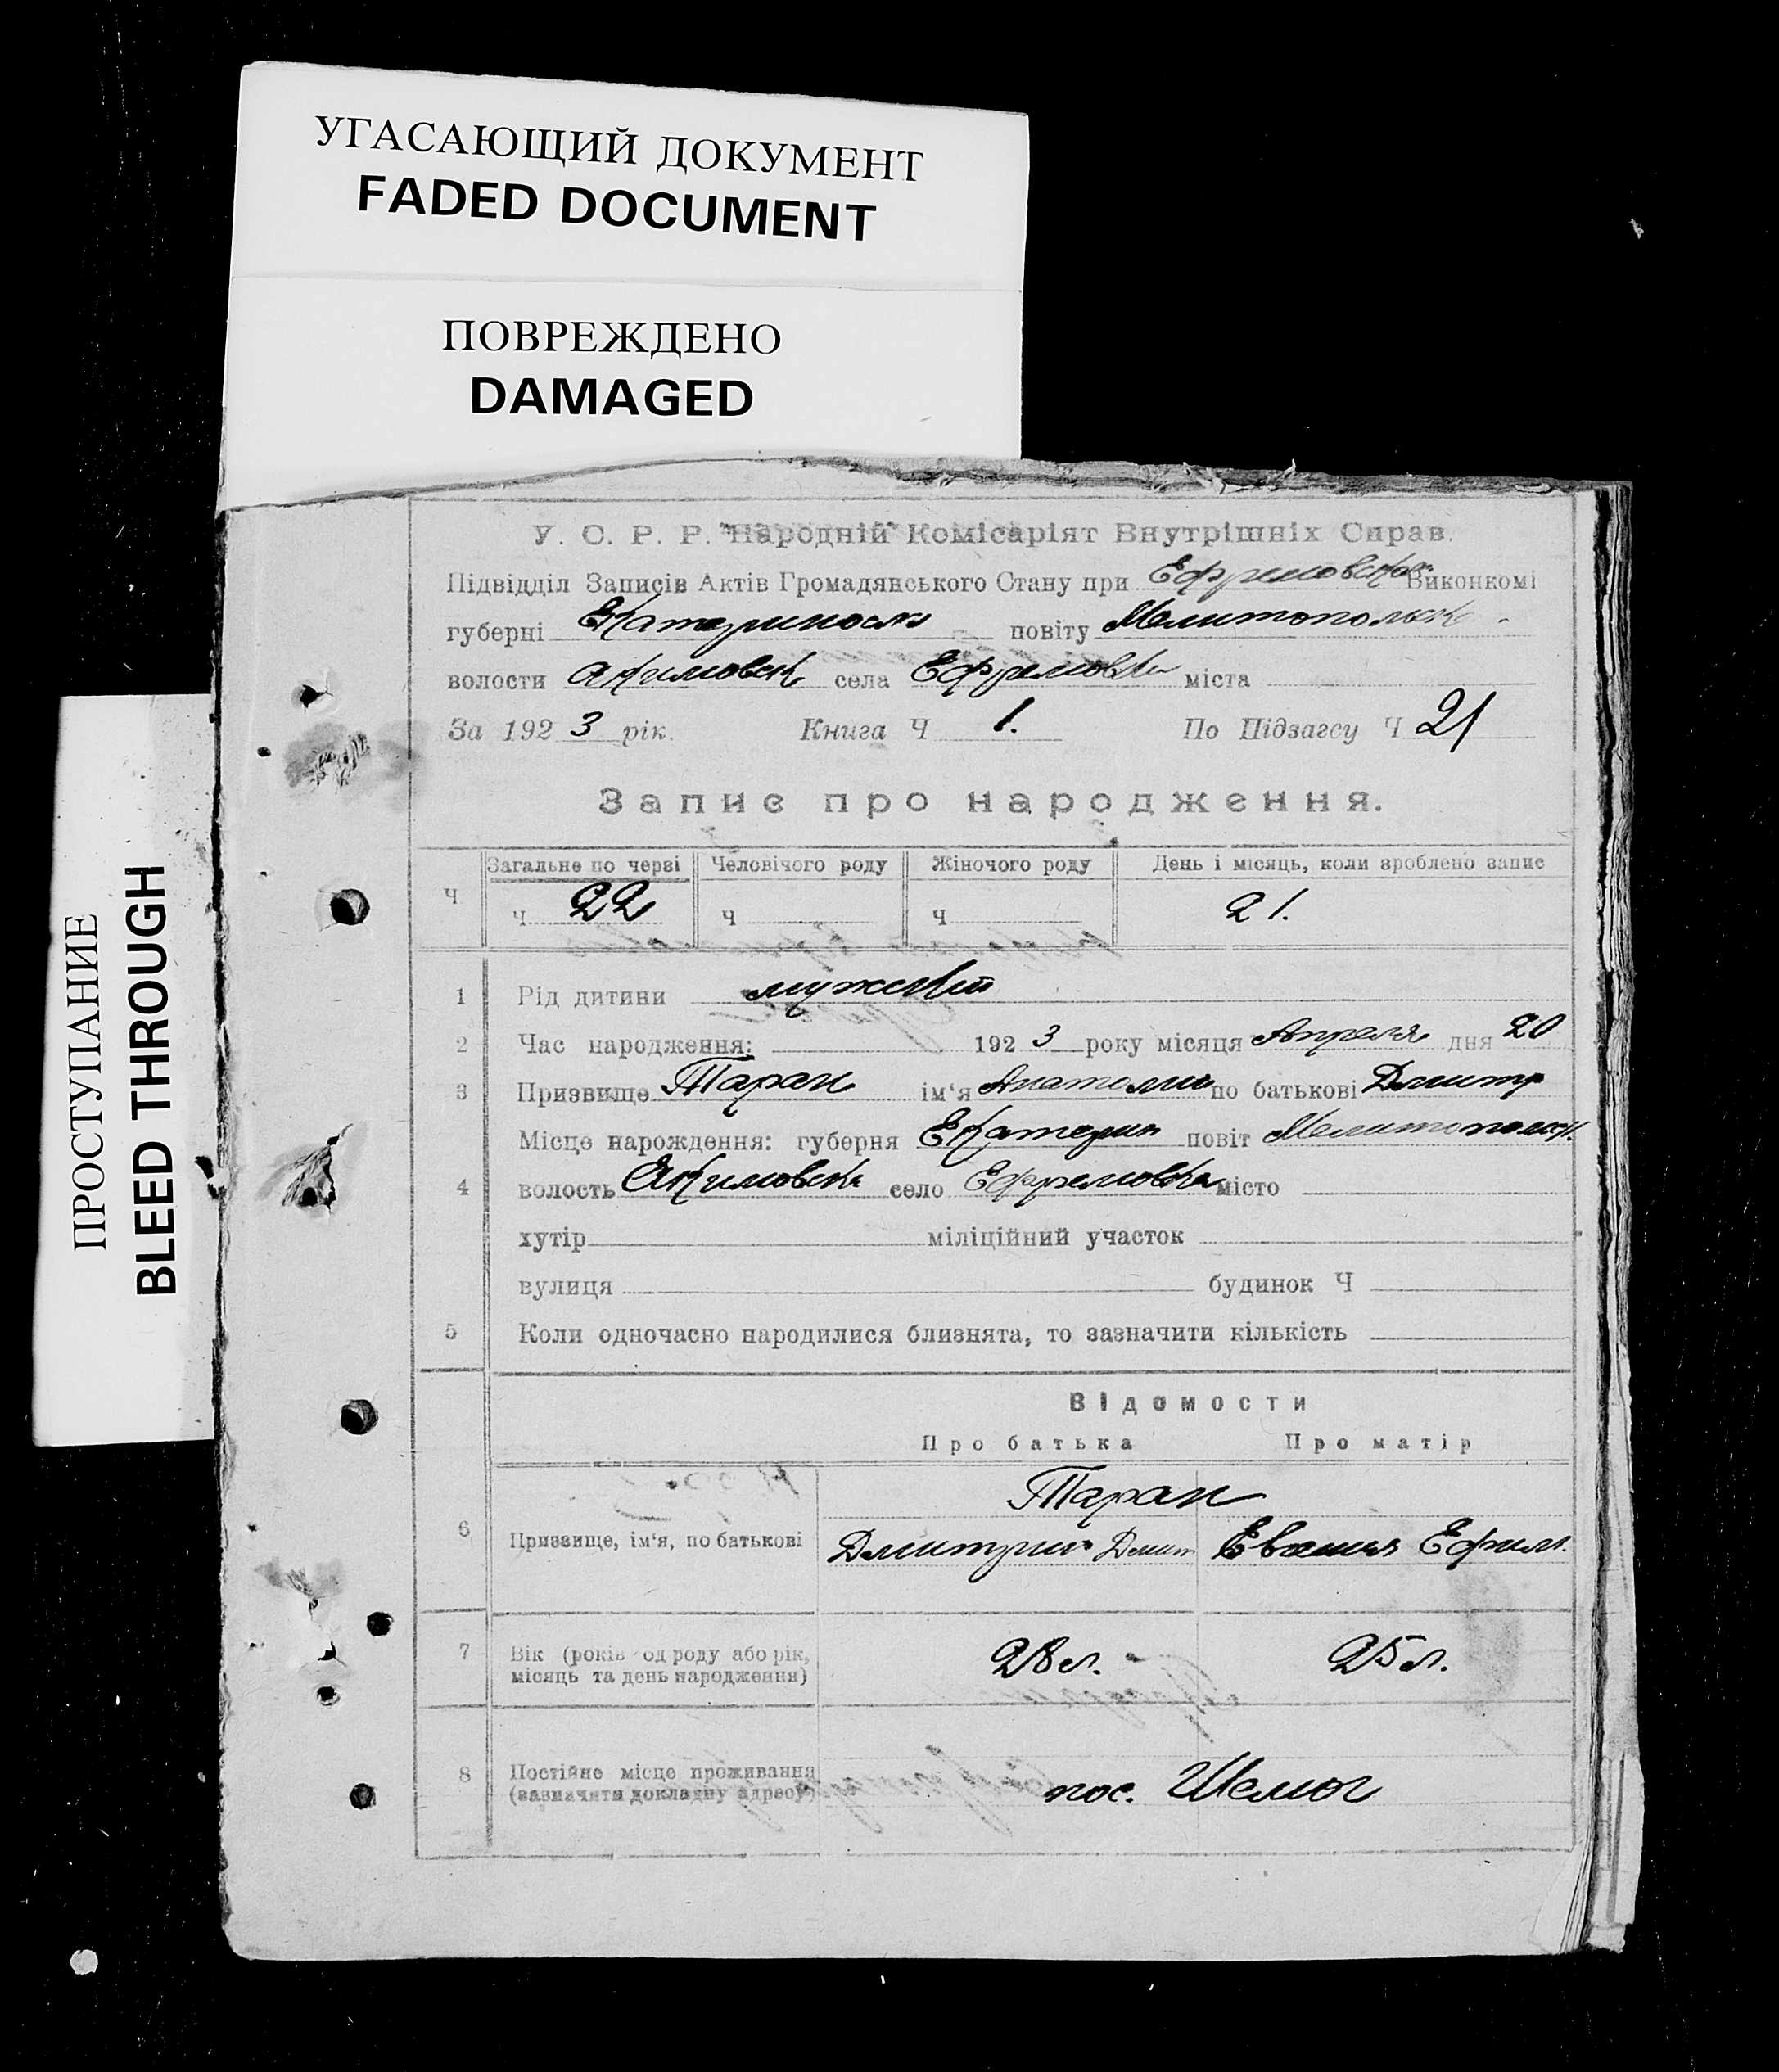 УГАСАЮЩИЙ ДОКУМЕНТ
FADED DOCUMENT
ПОВРЕЖДЕНО
DAMAGED
ПРОСТУПАНИЕ
BLEED THROUGH
У. С. Р. Р. Народній Комісаріят Внутрішніх Справ.
Підвідділ Записів Актів Громадянського Стану при Ефремовском Виконкомі
губерні Екатериносл повіту Мелитопольск
волости Акимовск села Ефремовка міста
За 1923 рік. Книга Ч 1. По Підзагсу Ч 21
Запис про народження.
Загальне по черзі Человічого роду Жіночого роду День і місяць, коли зроблено запис
Ч Ч 22 Ч Ч 21.
1 Рід дитини мужский
2 Час народження: 1923 року місяця Апреля дня 20
3 Призвище Таран ім‘я Анатолий по батькові Дмитр
Місце нарождення: губерня Екатерин повіт Мелитопольск.
4 волость Акимовска село Ефремовка місто
хутір міліційний участок
вулиця будинок Ч
5 Коли одночасно народилися близнята, то зазначити кількість
Відомости
Про батька Про матір
Таран
6 Призвище, ім‘я, по батькові Дмитрий Дмит Ефим.
7 Вік (років од роду або рік, 28 л. 25 л.
місяць та день народження)
8 Постійне місце проживання пос.
(зазначити докладну адресу)